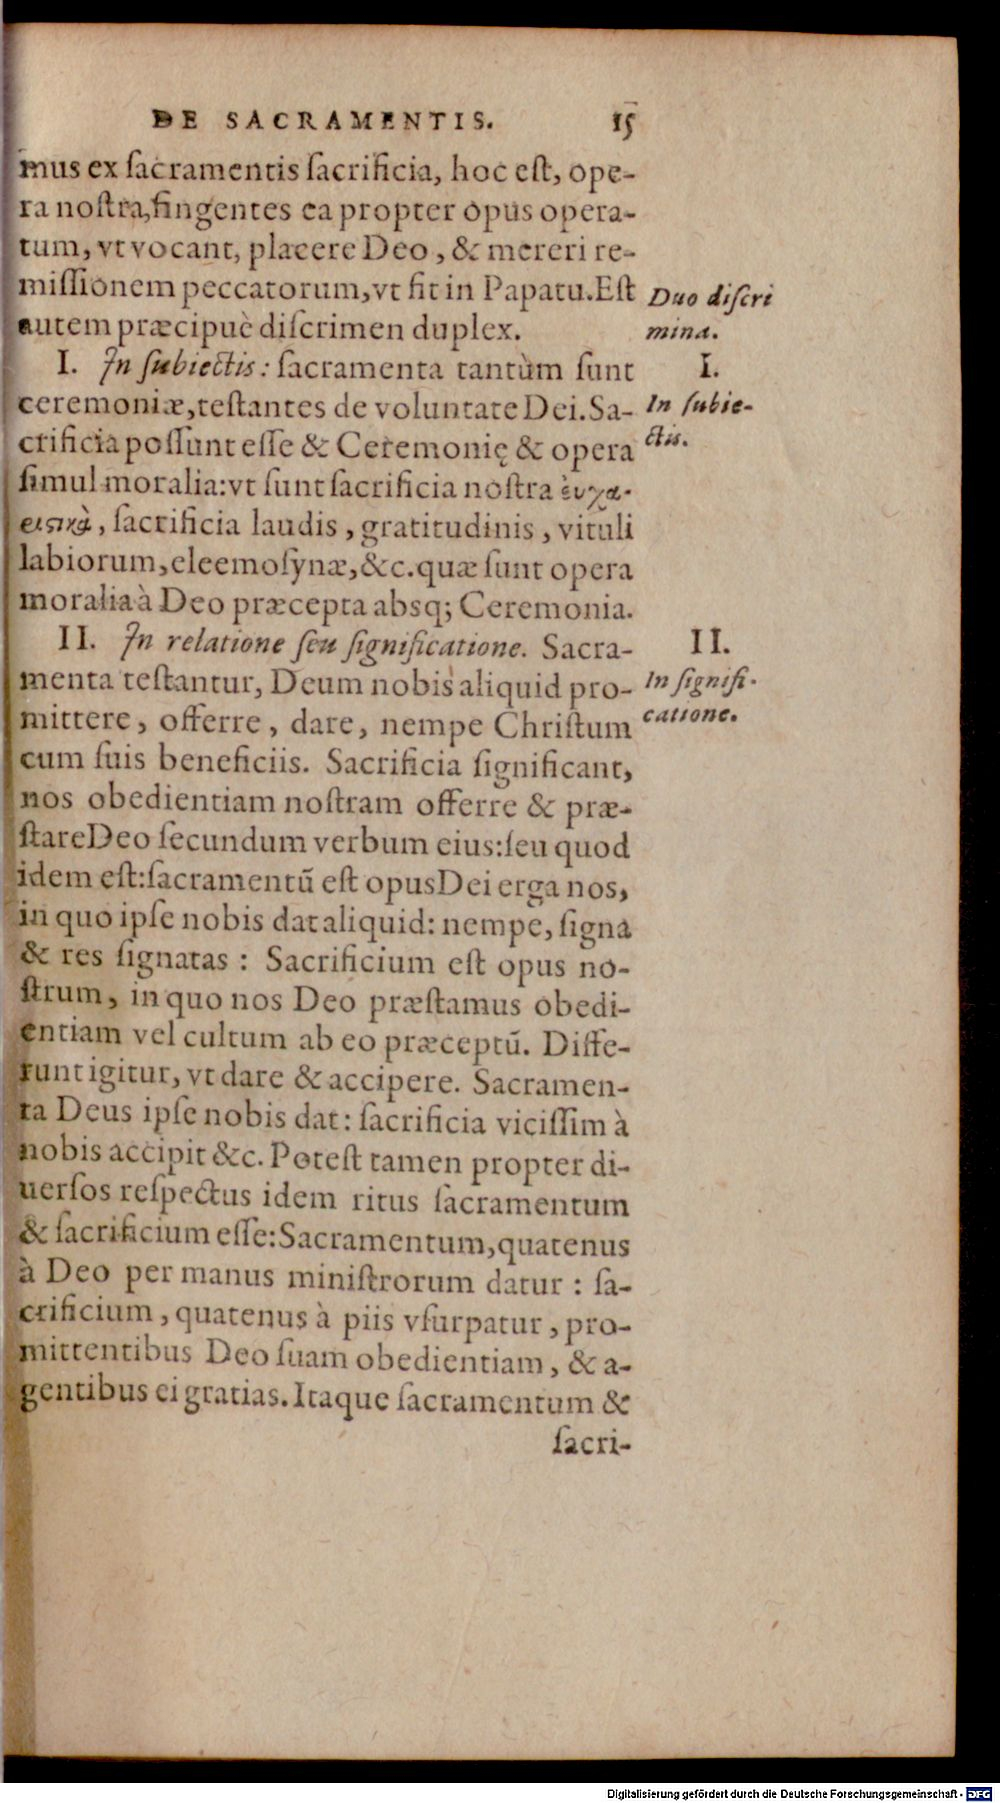 DE SACRAMENTIS. 15
mus ex ſacramentis ſacrificia, hoc eſt, ope-
ra noſtra, fingentes ea propter opus opera-
tum, vt vocant, placere Deo, & mereri re-
miſſionem peccatorum, vt fit in Papatu. Eſt
autem præcipuè diſcrimen duplex.
Duo diſcri
mina.
I. In ſubiectis: ſacramenta tantùm ſunt
ceremoniæ, teſtantes de voluntate Dei. Sa-
crificia poſſunt eſſe & Ceremonię & opera
ſimul moralia: vt ſunt ſacrificia noſtra ἐυχα-
ειςικὰ, ſacrificia laudis, gratitudinis, vituli
labiorum, eleemoſynæ, &c. quæ ſunt opera
moralia à Deo præcepta absq; Ceremonia.
I.
In ſubie-
ctis.
II. In relatione ſeu ſignificatione. Sacra-
menta teſtantur, Deum nobis aliquid pro-
mittere, offerre, dare, nempe Chriſtum
cum ſuis beneficiis. Sacrificia ſignificant,
nos obedientiam noſtram offerre & præ-
ſtare Deo ſecundum verbum eius: ſeu quod
idem eſt: ſacramentū eſt opus Dei erga nos,
in quo ipſe nobis dat aliquid: nempe, ſigna
& res ſignatas: Sacrificium eſt opus no-
ſtrum, in quo nos Deo præſtamus obedi-
entiam vel cultum ab eo præceptū. Diffe-
runt igitur, vt dare & accipere. Sacramen-
ta Deus ipſe nobis dat: ſacrificia viciſſim à
nobis accipit &c. Poteſt tamen propter di-
uerſos reſpectus idem ritus ſacramentum
& ſacrificium eſſe: Sacramentum, quatenus
à Deo per manus miniſtrorum datur: ſa-
crificium, quatenus à piis vſurpatur, pro-
mittentibus Deo ſuam obedientiam, & a-
gentibus ei gratias. Itaque ſacramentum &
ſacri-
II.
In ſignifi-
catione.
Digitalisierung gefördert durch die Deutsche Forschungsgemeinschaft - DFG